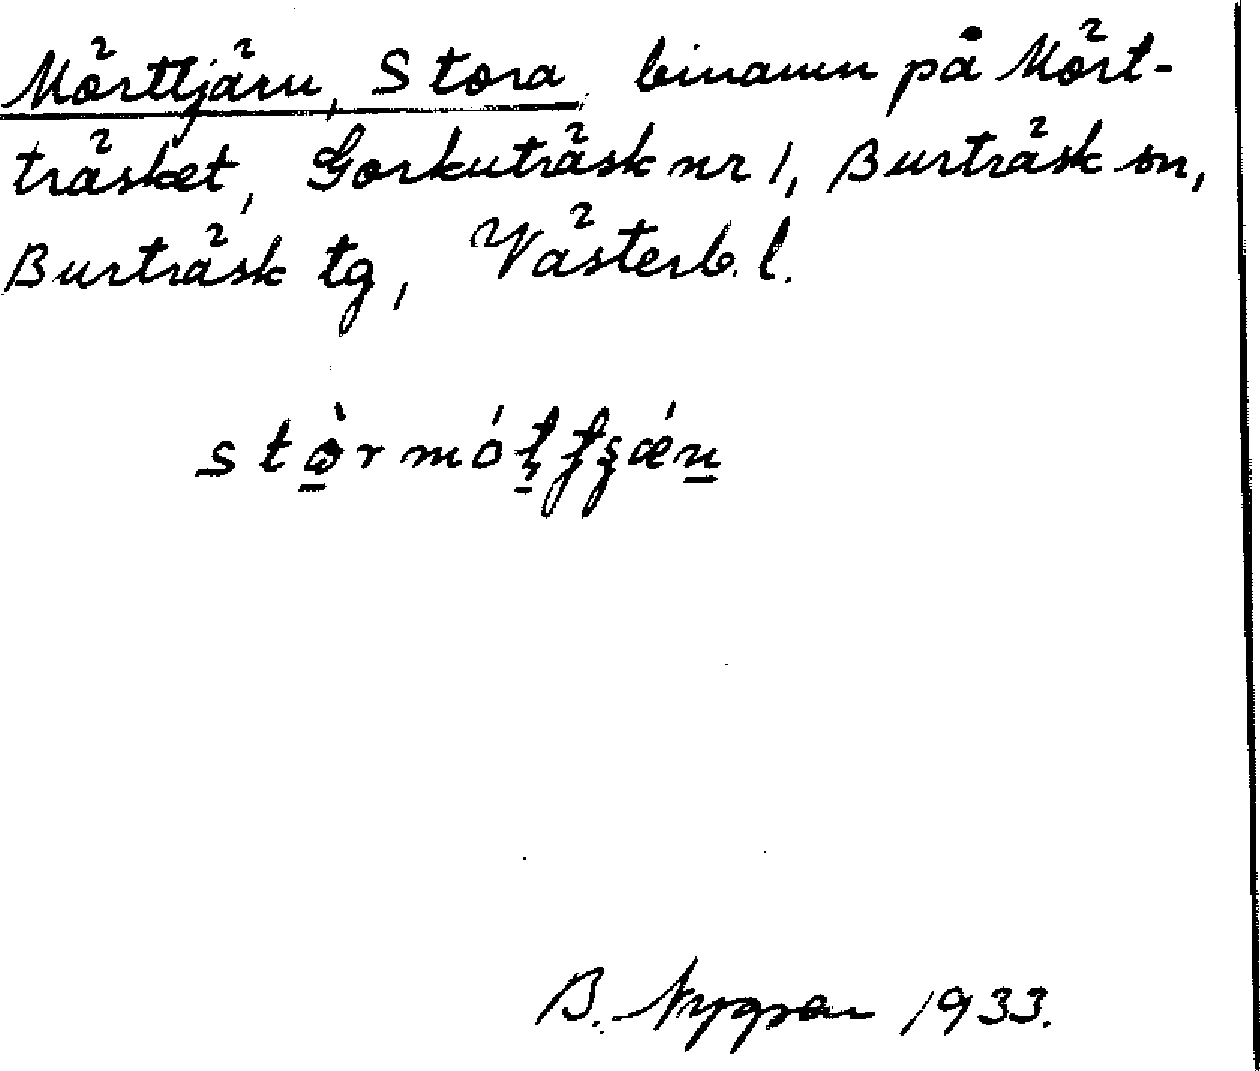 Mörttjärn, Stora binamn på Mört-
träsket, Gorkuträsk nr 1, Burträsk sn,
Burträsk tg, Västerb. l.
B. Nygren 1933.